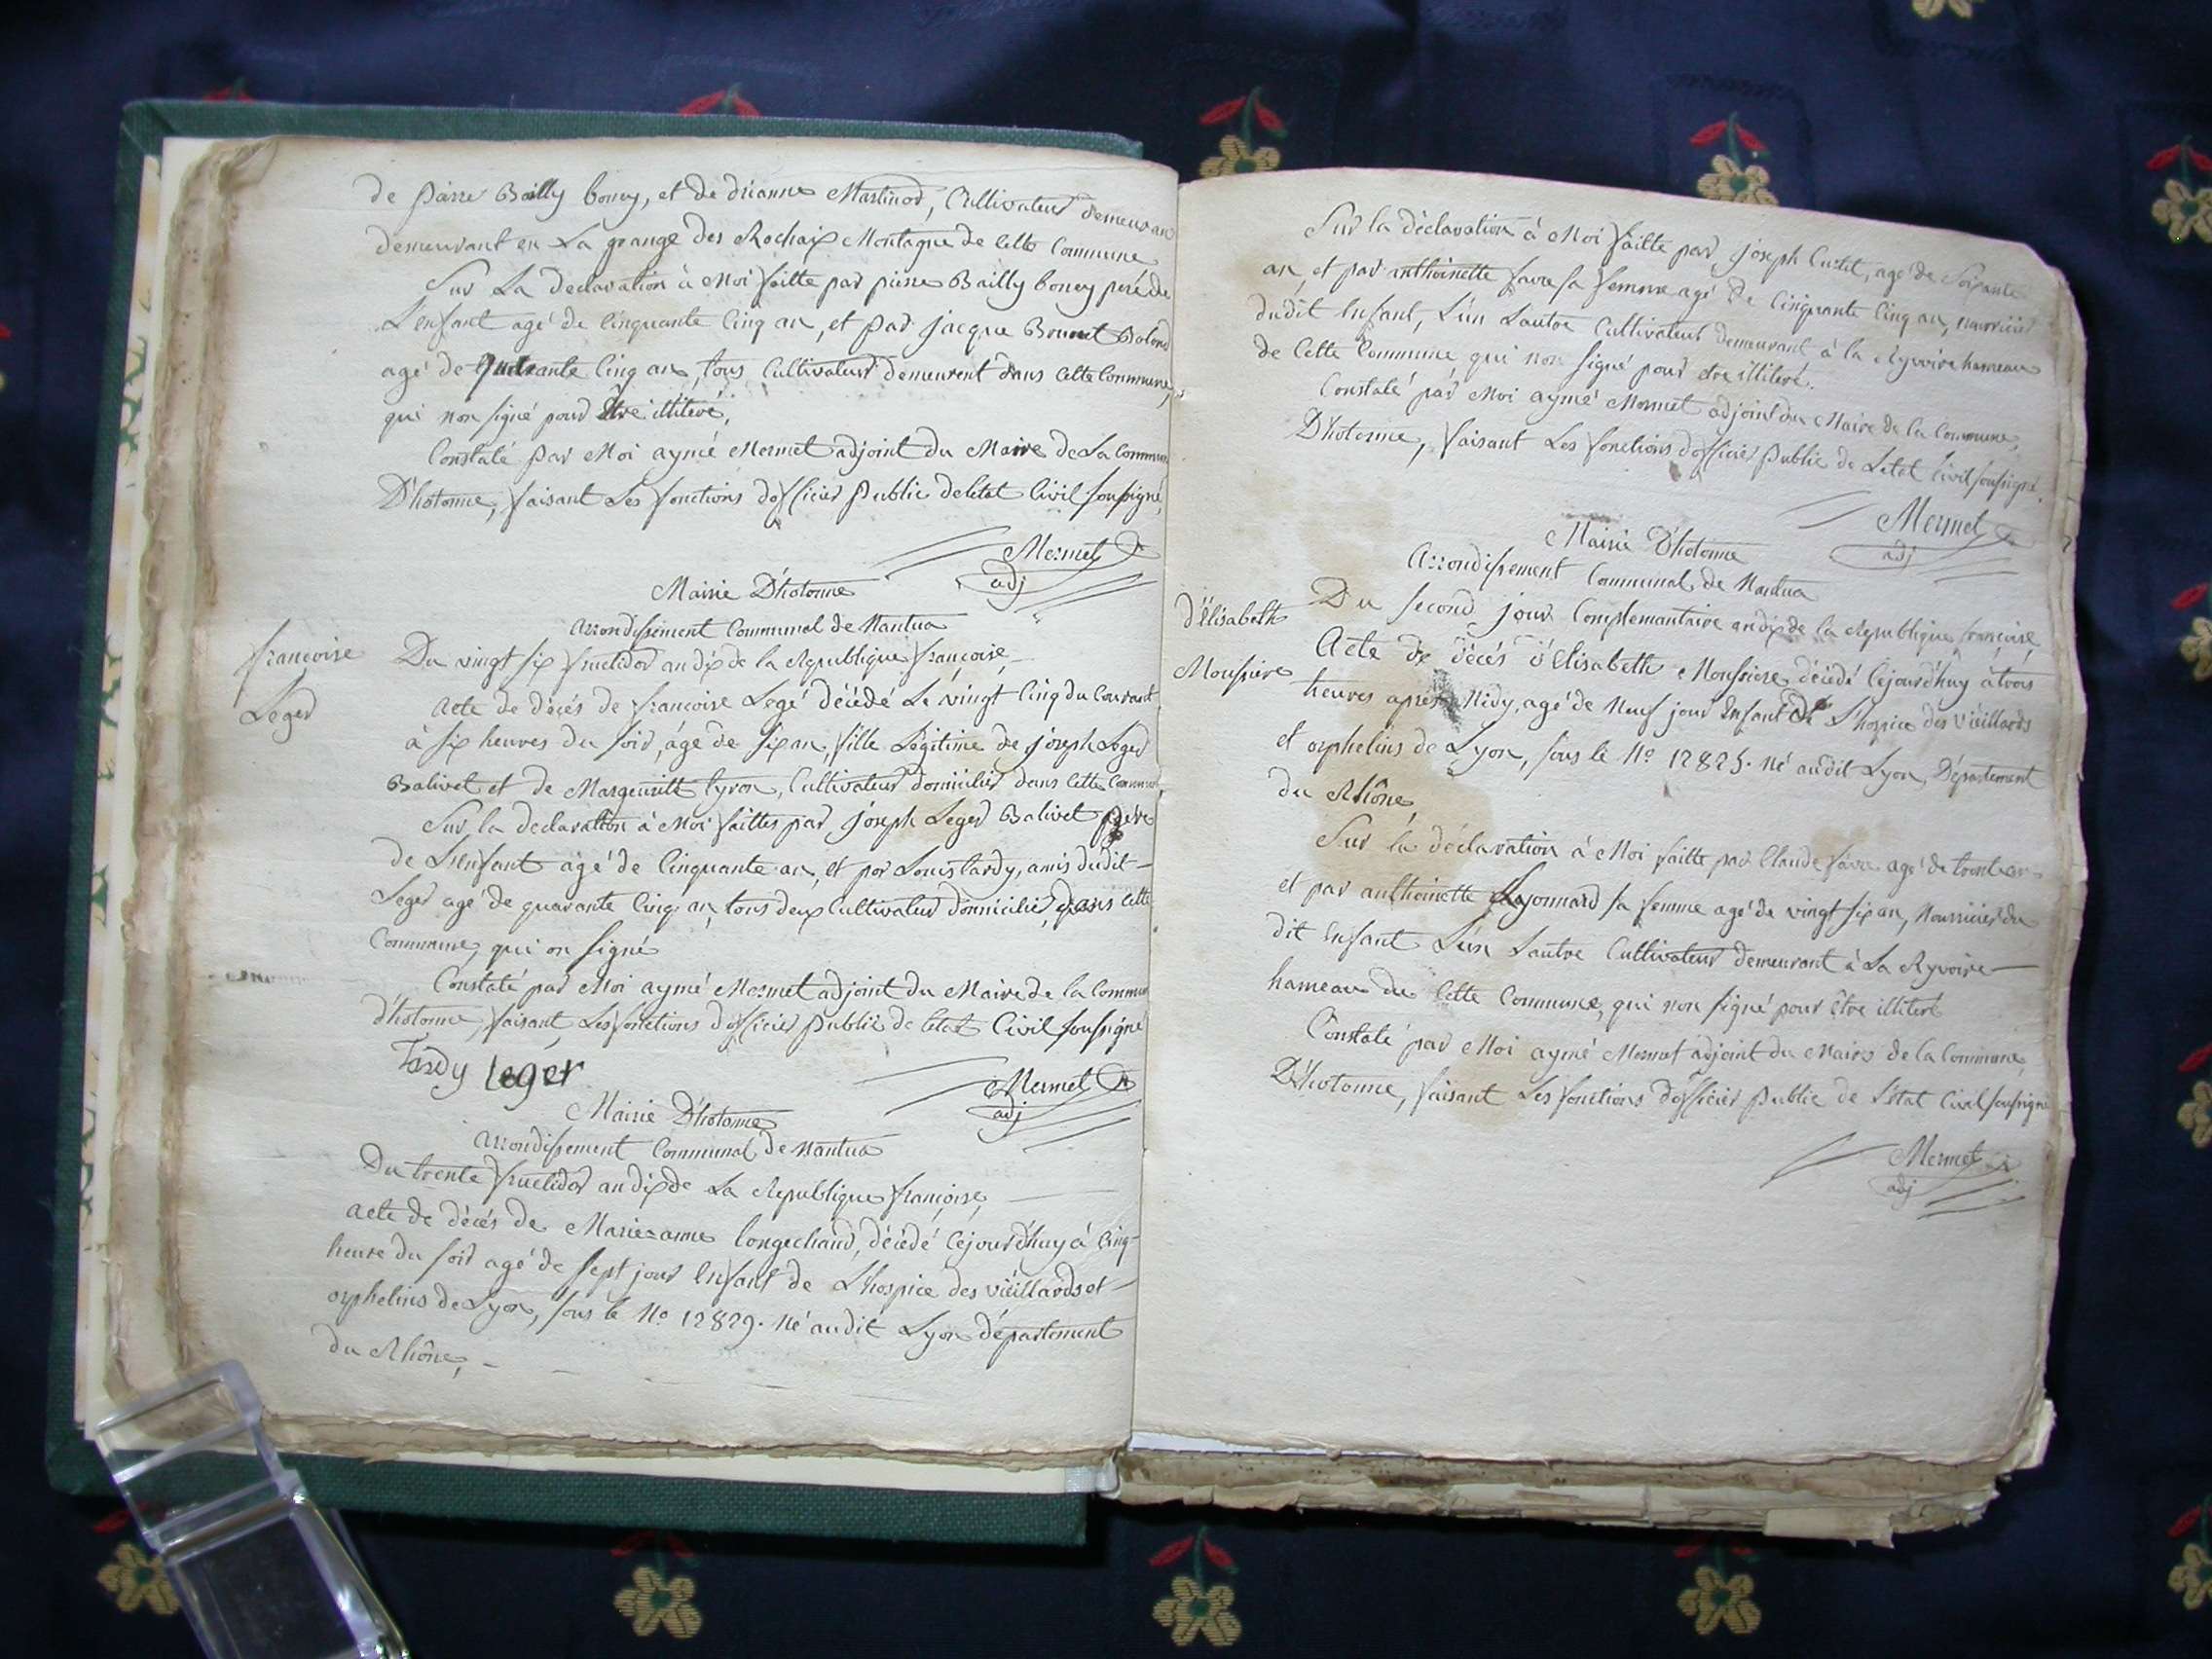 de pierre Bailly bouvy, et de drianne Martinod, Cultivateur demeuran
demeurant en La grange des Rochaix Montagne de Cette Commune
Sur La declaration à Moi faitte par pierre Bailly bouvy peré de
L'enfant agé de Cinquante Cinq an, et par jacque Bonnet
agé de quarante Cinq an, tous Cultivateur demeurent dans Cette Commune,
qui non signé pour être illiteré,
Constaté par Moi aymé Mermet adjoint du Maire de La Commun
D'hotonne, faisant Les fonctions d'officier Public de letat Civil soussigné,
Mermet
adj
Mairie D'hotonne
arrondissement Communal de Nantua
françoise
Leger
Du vingt six fructidor an dix de la Republique françoise,
acte de décés de françoise Legé décédé Le vingt Cinq du Courant
à six heures du soir, âge de six an, fille Légitime de joseph Leger
Balivet et de Margeuritt tyron, Cultivateur domicilier dans Cette Commun
Sur la declaration à Moi faittes par joseph Leger Balivet père
de L'enfant agé de Cinquante an, et par Louis tardy, amis dudit
Leger agé de quarante Cinq an, tous deux Cultivateur domicilié, dans Cette
Commune, qui on signé
Constaté par Moi aymé Mermet adjoint du Maire de la Commun
d'hotonne, faisant Les fonctions d'officier public de letat Civil soussigné
Tardy Leger
Mermet
adj
Mairie D'hotonne
arrondissement Communal de Nantua
Du trente fructidor an dix de La Republique françoise,
acte de décés de Marie anne Longechaud, décédé Cejourd'huy à Cinq
heure du soir agé de sept jour Enfant de L'hospice des vieillards et
orphelins de Lyon, sous le No 12829. Né audit Lyon département
du Rhône,
Sur la déclaration à Moi faitte par joseph Cuttet, agé de Soixante
an, et par anthoinette favre sa femme agé de Cinquante Cinq an, nourricier
dudit Enfant, L'un Lautre Cultivateur demeurant à la Ryvoire hameau
de Cette Commune qui non signé pour etre illiteré.
Constaté par Moi aymé Mermet adjoint du Maire de la Commune,
D'hotonne, faisant Les fonctions d'officier Public de Letat Civil soussigné.
Mermet
adj
Mairie D'hotonne
Arrondissement Communal de Nantua
d'Elisabeth
Moussiere
Du second jour Complemantaire an dix de la Republique françoise,
Acte de décés d'Elisabeth Moussiere, décédé Cejourd'huy à trois
heures aprés Midy, agé de Neuf jour Enfant de L'hospice des vieillards
et orphelins de Lyon, sous le No 12825. Né audit Lyon, Département
du Rhône,
Sur la déclaration à Moi faitte par Claude favre agé de trente an
et par anthoinette Layonnard sa femme agé de vingt six an, Nourricier du
dit Enfant L'un Lautre Cultivateur demeurant à La Ryvoire
hameau de Cette Commune, qui non signé pour être illiteré
Constaté par Moi aymé Mermet adjoint du Maire de la Commune,
D'hotonne, faisant Les fonctions d'officier public de L'état Civil soussigné
Mermet
adj